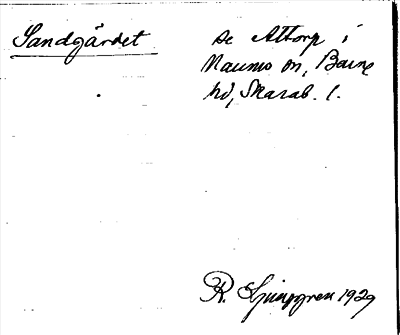 Sandgärdet
se Attorp i
Naums sn, Barne
hd, Skarab. l.
R. Ljunggren 1929